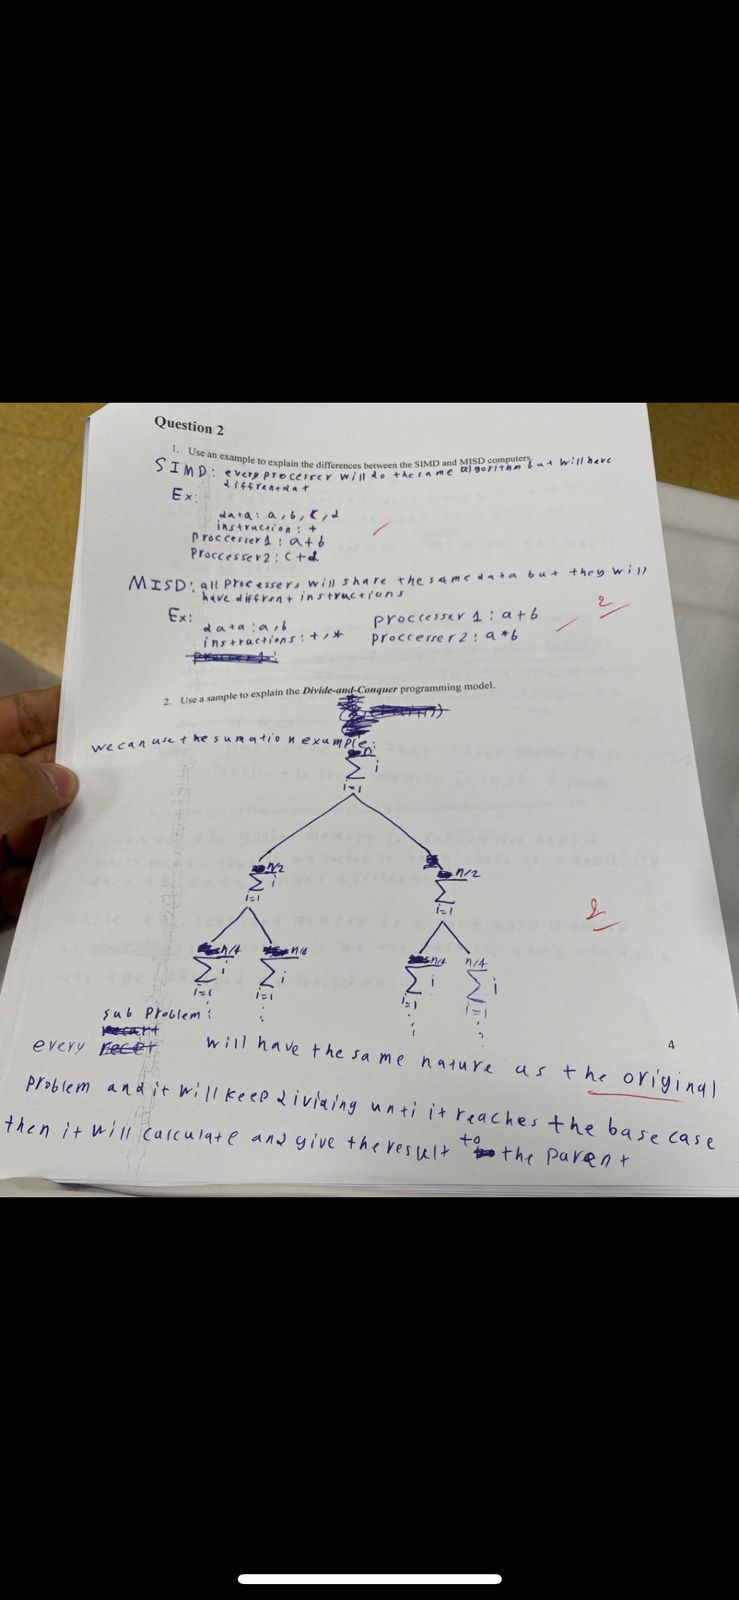 Question 2
1. Use an example to explain the differences between the SIMD and MISD computers.
SIMD: every processer will do the same algorithm but will have
diffrent dat
Ex:
data: a, b, c, d
instruction: +
proccesser 1: a+b
Proccesser 2: c+d
MISD: all processers will share the same data but they will
have diffrent instructions
Ex:
data: a, b
instractions: +, *
proccesser 1: a+b
proccesser 2: a*b
2
2. Use a sample to explain the Divide-and-Conquer programming model.
we can use the sumation example:
n
Σ i
i=1
n/2
Σ i
i=1
n/2
Σ
i=1
2
n/4
Σ i
i=1
n/4
Σ i
i=1
n/4
Σ i
i=1
n/4
Σ i
i=1
sub problem
every will have the same nature as the original
4
problem and it will keep dividing unti it reaches the base case
then it will calculate and give the result to the parent